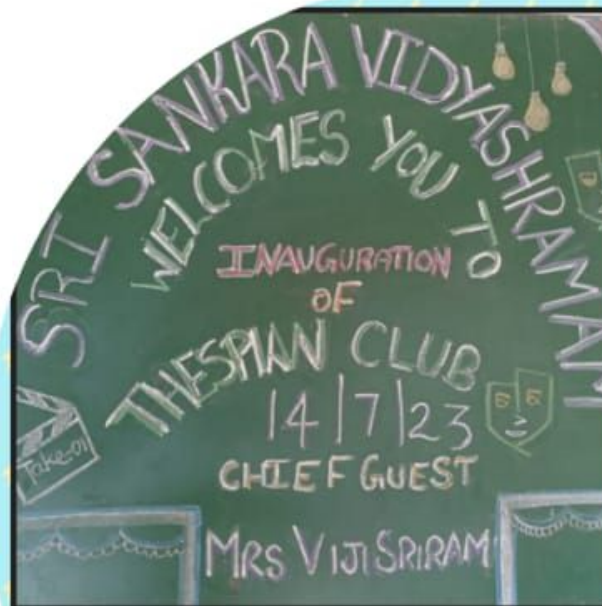 SRI SANKARA VIDYASHRAMAM
WELCOMES YOU TO
INAUGURATION
OF
THESPIAN CLUB
14|7|23
CHIEF GUEST
MRS VIJI SRIRAM
Take-01